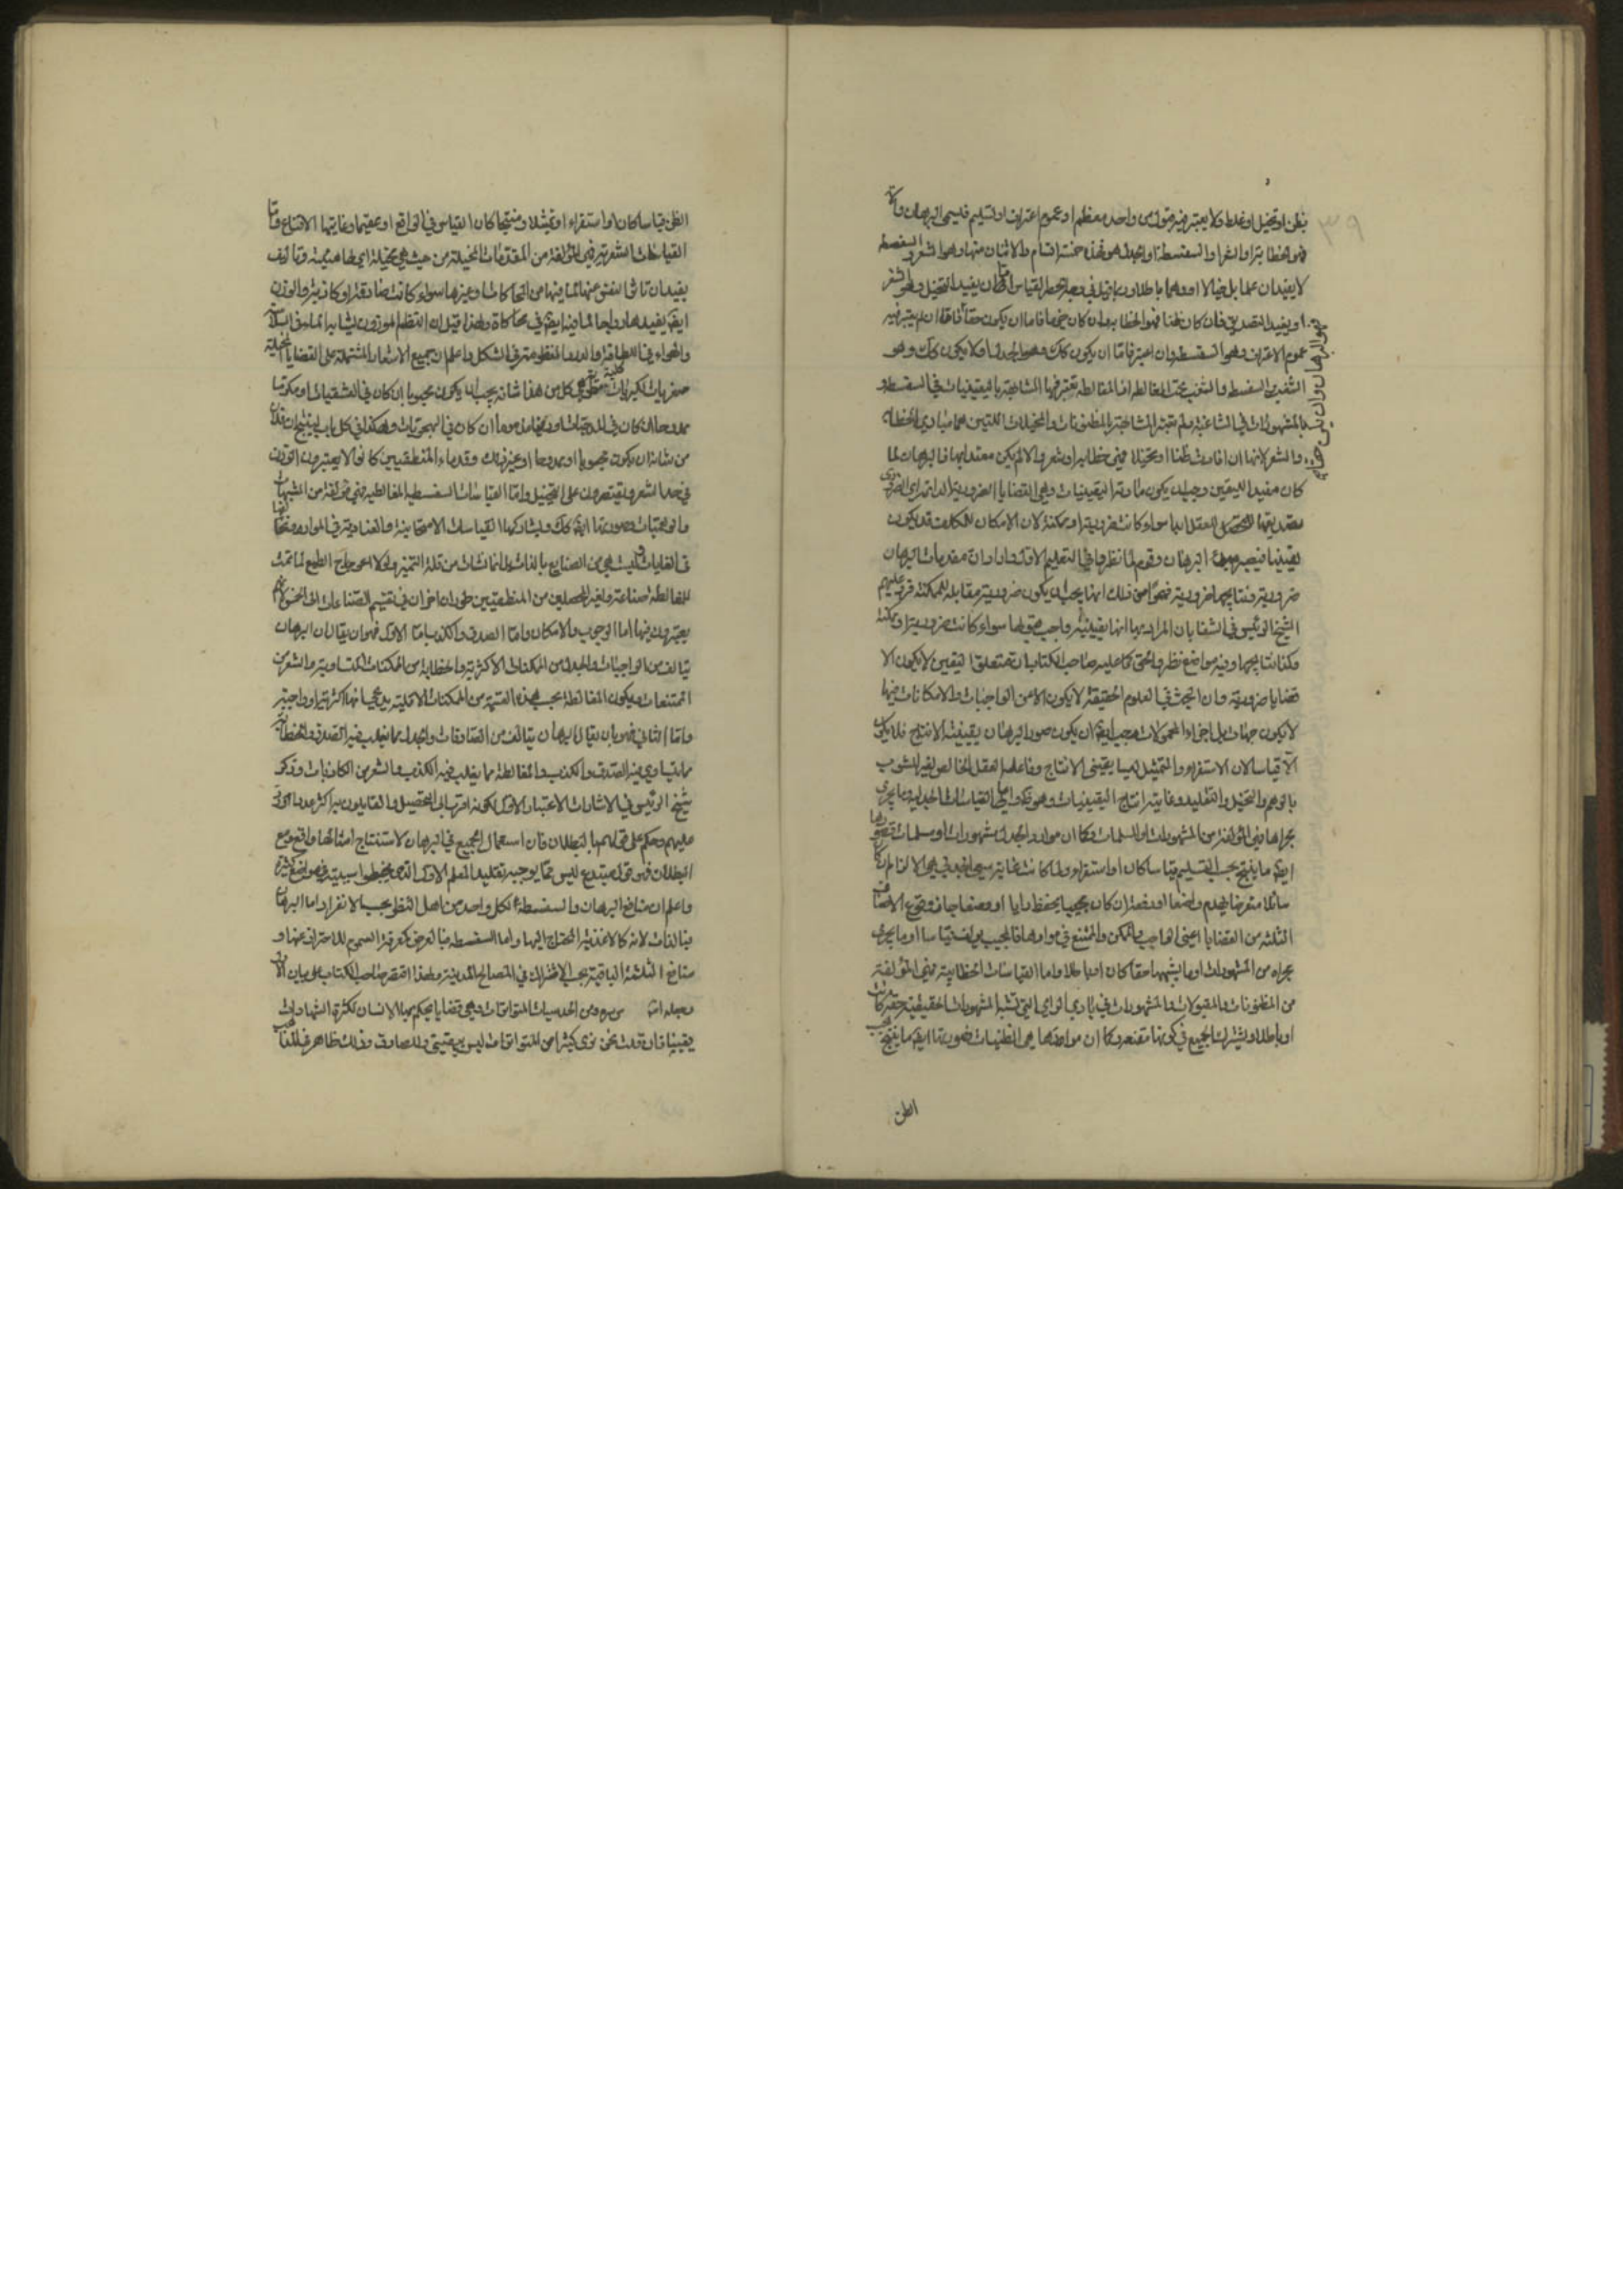 ٣٩
بظن او تخيل او غلط ولا يعتبر فيه قول من واحد معظم او عموم اعتراف او تسليم فليس البرهان والا
فهو الخطابة او الشعر او السفسطة او الجدل فهذه خمسة اقسام والاثنان منها وهو الشعر والسفسطة
لا يفيدان علما بل خيالا او وهما باطلا وربما قيل في وجه الحصر القياس اما ان يفيد التخيل وهو الشعر
او يفيد التصديق فان كان ظنا فهو الخطابه وان كان جزما فاما ان يكون حقا فاما ان لم يعتبر فيه
عموم الاعتراف وهو السفسطه وان اعتبر فاما ان يكون كك وهو الجدل او لا يكون كك وهو
الشغب والسفسطه والشغب تحت المغالطه
بالمشهورات في المشاغبة ولم تعتبر المشابهة بالمظنونات والمخيلات اللتين هما مبادي الخطابه
والشعر لانها ان افادت ظنا او تخيلا فهي خطابه او شعر والا لم يكن معتدا بها فالبرهان لما
كان مفيدا لليقين وجب ان يكون مادته اليقينيات وهي القضايا الضرورية
سواء كانت ضرورية او ممكنة لان الامكان للممكنات قد يكون
يقينيا فيصير مبدأ البرهان وقوم لما نظروا في التعليم الاول وان مقدمات البرهان
ضرورية ونتايجها ضرورية فهموا من ذلك انها يجب ان يكون ضرورية مقابلة للممكنة فرد عليهم
الشيخ الرئيس في الشفا بان المراد بها انها يقينية واجب قبولها سواء كانت ضرورية او ممكنة
وكذا نتايجها وفيه مواضع نظر والحق ما عليه صاحب الكتاب ان متعلق اليقين لا يكون الا
قضايا ضرورية وان البحث في العلوم الحقيقة لا يكون الا من الواجبات والامكانات فيها
لا يكون جهات بل اجزاء المحمولات ويجب ايضا ان يكون صورة البرهان يقينية الانتاج فلا يكون
الا قياسا لان الاستقراء والتمثيل ليسا يقيني الانتاج وفاعله العقل الخالص الغير المشوب
بالوهم والتخيل والتقليد وغايته انتاج اليقينيات وهو ظ واما القياسات الجدلية وما يجري
مجراها فهي المؤلفة من المشهورات او المسلمات وكما ان مواد الجدل مشهورات او مسلمات فصورها
ايضا ما ينتج بحسب التسليم قياسا كان او استقراء ولما كانت غايته سعي الجدلي هي الالزام ان كان
سائلا معترضا يهدم وضعا او دفعه ان كان مجيبا يحفظ رايا او وضعا جاز وقوع الاصناف
الثلثة من القضايا اعني الواجب والممكن والممتنع في موادها فالمجيب يؤلف قياسا او ما يجري
مجراه من المشهورات او ما يشبهها حقا كان او باطلا واما القياسات الخطابية فهي المؤلفة
من المظنونات والمقبولات والمشهورات في بادي الراي التي تشبه المشهورات الحقيقية حقة كانت
او باطلة ويشترك الجميع في كونها مقنعة وكما ان موادها هي الظنيات فصورتها ايضا ما ينتج بحسب
الظن
الظن قياسا كان او استقراء او تمثيلا ومنتجا كان القياس في الواقع او عقيما وغايتها الاقناع واما
القياسات الشعرية فهي المؤلفة من المقدمات المخيلة من حيث هي مخيلة
سواء كانت صادقة او كاذبة والوزن
ايضا يفيدها رواجا لما فيه ايضا في محاكاة ولهذا قيل ان النظم الموزون يشابه الماء في السلاسة
والهواء في اللطافة والدرر المنظومة في الشكل واعلم ان جميع الاشعار المشتملة على القضايا المخيلة
صغريات لكبريات كلية مطوية كل من هذا شانه يجب ان يكون محبوبا ان كان في العشقيات او مكرما
ممدوحا ان كان في المدحيات او مذموما ان كان في الهجويات وهكذا في كل باب لينتج ان فلانا
من شانه ان يكون محبوبا او ممدوحا او غير ذلك وقدماء المنطقيين كانوا لا يعتبرون الوزن
في حد الشعر ويقتصرون على التخييل واما القياسات السفسطية المغالطية فهي مؤلفة من المشبهات
والوهميات وصورتها ايضا كك ويشاركها القياسات الامتحانية والعنادية في المواد وتخالفها
في الغايات وليست هي من الصنايع بالذات بل انما نشات من قلة التميز ولولا عوجاج الطبع لما تمت
للمغالطة صناعة ولغير المحصلين من المنطقيين طوران اخران في تقسيم الصناعات الى الخمس فانهم
يعتبرون فيها اما الوجوب والامكان واما الصدق والكذب اما الاول فهو ان يقال ان البرهان
يتالف من الواجبات والجدل من الممكنات الاكثرية والخطابة من الممكنات المتساوية والشعر من
الممتنعات ويكون المغالطة بحسب هذه القسمة من الممكنات الاقلية يدعى انها اكثرية او واجبة
واما الثاني فهو بان يقال البرهان يتالف من الصادقات والجدل مما يغلب فيه الصدق والخطابة
مما يتساوي فيه الصدق والكذب والمغالطة مما يغلب فيه الكذب والشعر من الكاذبات وذكر
شيخ الرئيس في الاشارات الاعتبار الاول لكونه اقرب الى التحصيل والقايلون به اكثر عددا ورد
عليهم وحكم على قولهم بالبطلان فان استعمال الجميع في البرهان لاستنتاج امثالها واقع ومع
البطلان فهو قول مبتدع ليس مما يوجبه تقليد المعلم الاول
واعلم ان منافع البرهان والسفسطة لكل واحد من اهل النظر بحسب الانفراد اما البرهان
فبالذات لانه كالاغذية المحتاج اليها واما السفسطه فبالعرض كمعرفة السموم للاحتراز عنها و
منافع الثلثة الباقية بحسب الاشتراك في المصالح المدنية ولهذا اقتصر صاحب الكتاب على بيان الاولين
من الحدسيات المتواترات وهي قضايا يحكم بها الانسان لكثرة الشهادات
يقينا فان قلت نحن نرى كثيرا من المتواترات ليس بيقيني